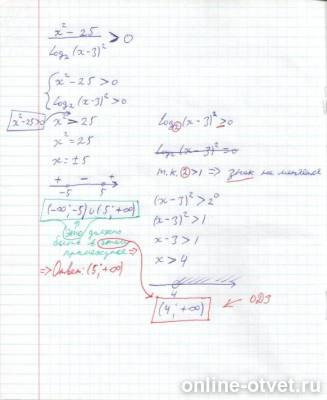 x² - 25
log₂(x-3)² > 0
{ x² - 25 > 0
log₂(x-3)² > 0
x²-25>0
x² > 25
x² = 25
x = ±5
+ - +
-5 5
(-∞; -5) ∪ (5; +∞)
это должно
быть в этом
промежутке =>
=> Ответ: (5; +∞)
log₂(x-3)² > 0
log₂(x-3)² = 0
т.к. 2 > 1 => знак не меняется
(x-3)² > 2⁰
(x-3)² > 1
x-3 > 1
x > 4
4
(4; +∞)
ОДЗ
online-otvet.ru